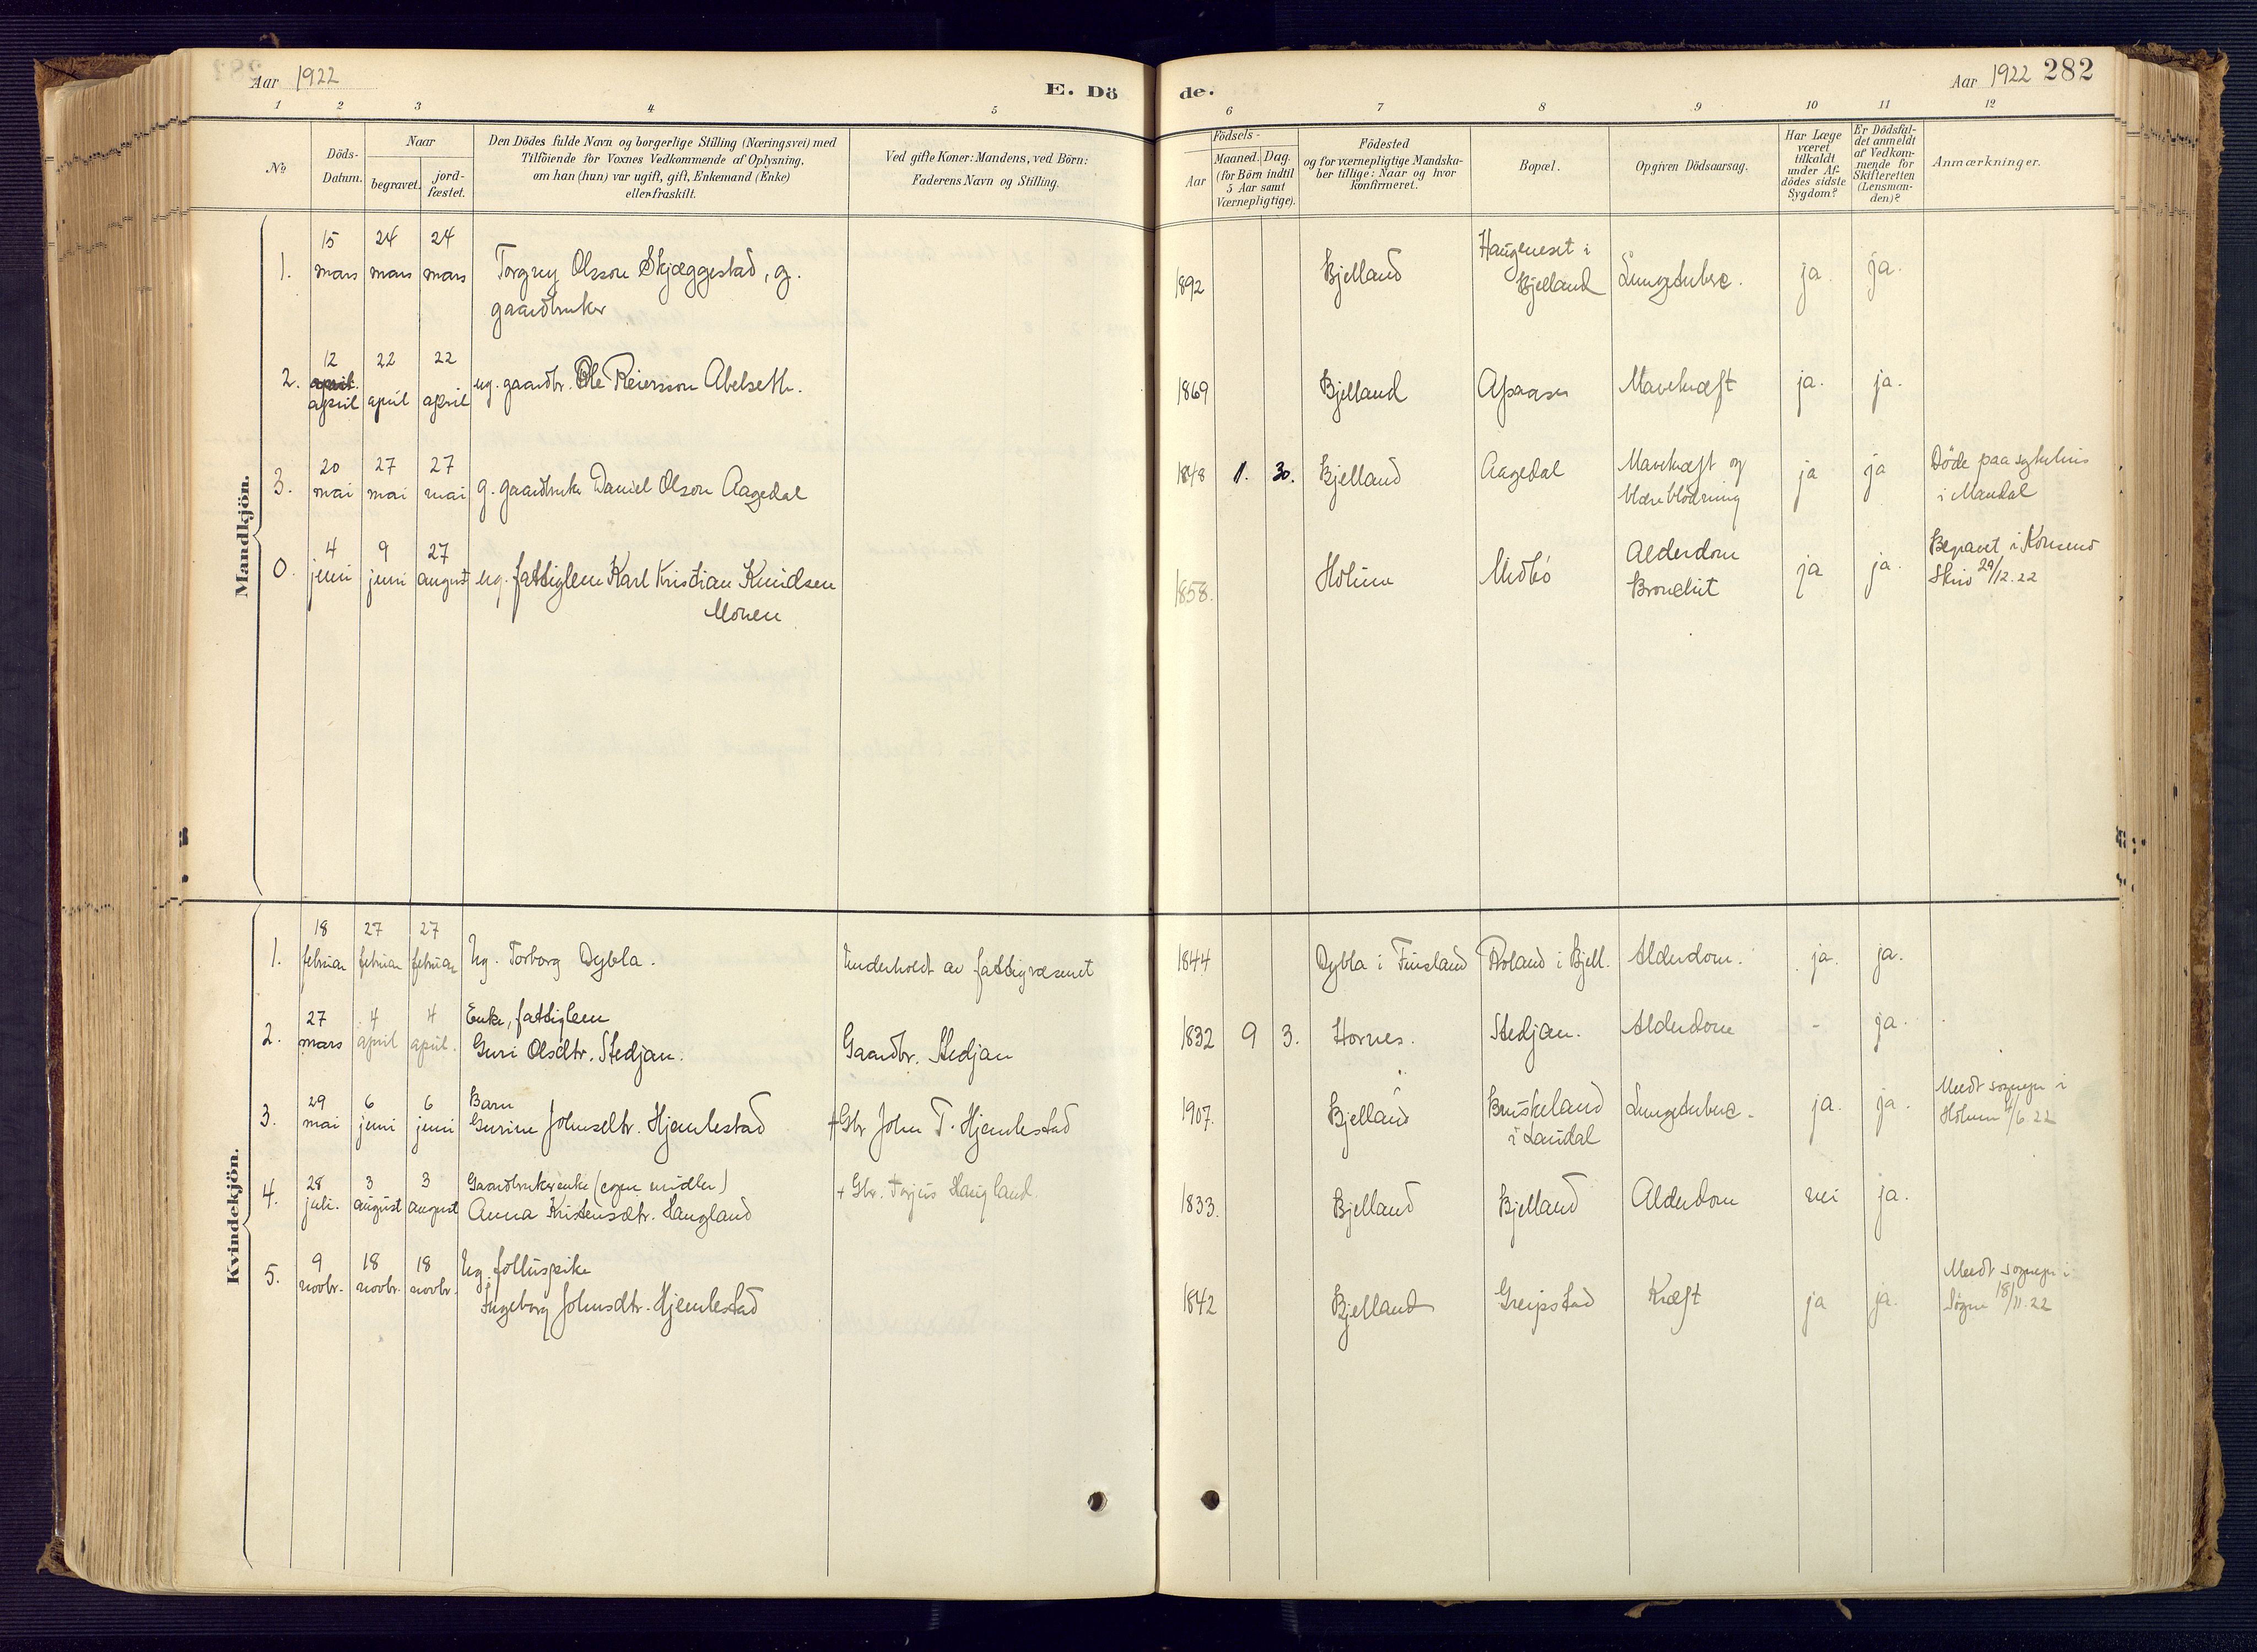 Aar 1922
E. Dö
de.
Aar 1922 282
1 2 3 4 5 6 7 8 9 10 11 12
No
Döds-
Datum.
Naar
begravet.
jord-
fæstet.
Den Dödes fulde Navn og borgerlige Stilling (Næringsvei) med
Tilföiende for Voxnes Vedkommende af Oplysning,
om han (hun) var ugift, gift, Enkemand (Enke)
eller fraskilt.
Ved gifte Koner: Mandens, ved Börn:
Faderens Navn og Stilling.
Födsels-
Aar
Maaned. Dag.
(for Börn indtil
5 Aar samt
Værnepligtige).
Födested
og for værnepligtige Mandska-
ber tillige: Naar og hvor
konfirmeret.
Bopæl.
Opgiven Dödsaarsag.
Har Læge
været
tilkaldt
under Af-
dödes sidste
Sygdom?
Er Dödsfal-
det anmeldt
af Vedkom-
mende for
Skifteretten
(Lensman-
den)?
Anmærkninger.
Mandkjön.
1. 15 mars 24 mars 24 mars Torgny Olsson Skjæggestad, g.
gaardbruker
1892 Bjelland Haugneset i
Bjelland Lungetuberc. ja. ja.
2. 12 april april 22 april 22 april ug. gaardbr. Ole Reiersson Abelseth.
1869 Bjelland Aasen Mavekræft ja. ja.
3. 20 mai 27 mai 27 mai g. gaardbruker Daniel Olson Aagedal
1848 1. 30. Bjelland Aagedal Mavekræft og
blæreblödning ja ja Döde paa sykehus
i Mandal
0. 4 juni 9 juni 27 august ug. fattiglem Karl Kristian Knudsen
Monen
1858. Holum Midbö Alderdom
Bronchit ja ja.
Skriv 29/12.22
Kvindekjön.
1. 18 februar 27 februar 27 februar Ug. Torborg Dybla. Underholdt av fattigvæsenet
1844 Dybla i Finsland Röland i Bjell. Alderdom. ja. ja.
2. 27 mars 4 april 4 april. Enke, fattiglem
Guri Olsdtr. Stedjan. Gaardbr. Stedjan
1832 9 3. Hornes. Stedjan. Alderdom - ja.
3. 29 mai 6 juni 6 juni Barn
Gurine Johnsdtr. Hjemlestad +Gbr John T. Hjemlestad
1907. Bjelland Bruskeland
i Laudal Lungetuberc. ja. ja. Meldt sogнepr i
Holum 4/6.22
4. 28 juli. 3 august 3 august Gaardbrukerenke (egne midler)
Anna Kristensdtr. Haugland + Gbr. Terjus Haugland.
1833. Bjelland Bjelland Alderdom nei ja.
5. 9 novbr. 18 novbr. 18 novbr. Ug. folluspike
Ingeborg Johnsdtr. Hjemlestad
1842 Bjelland Greipstad Kræft ja ja. Meldt sognepr i
Søgne 18/11.22